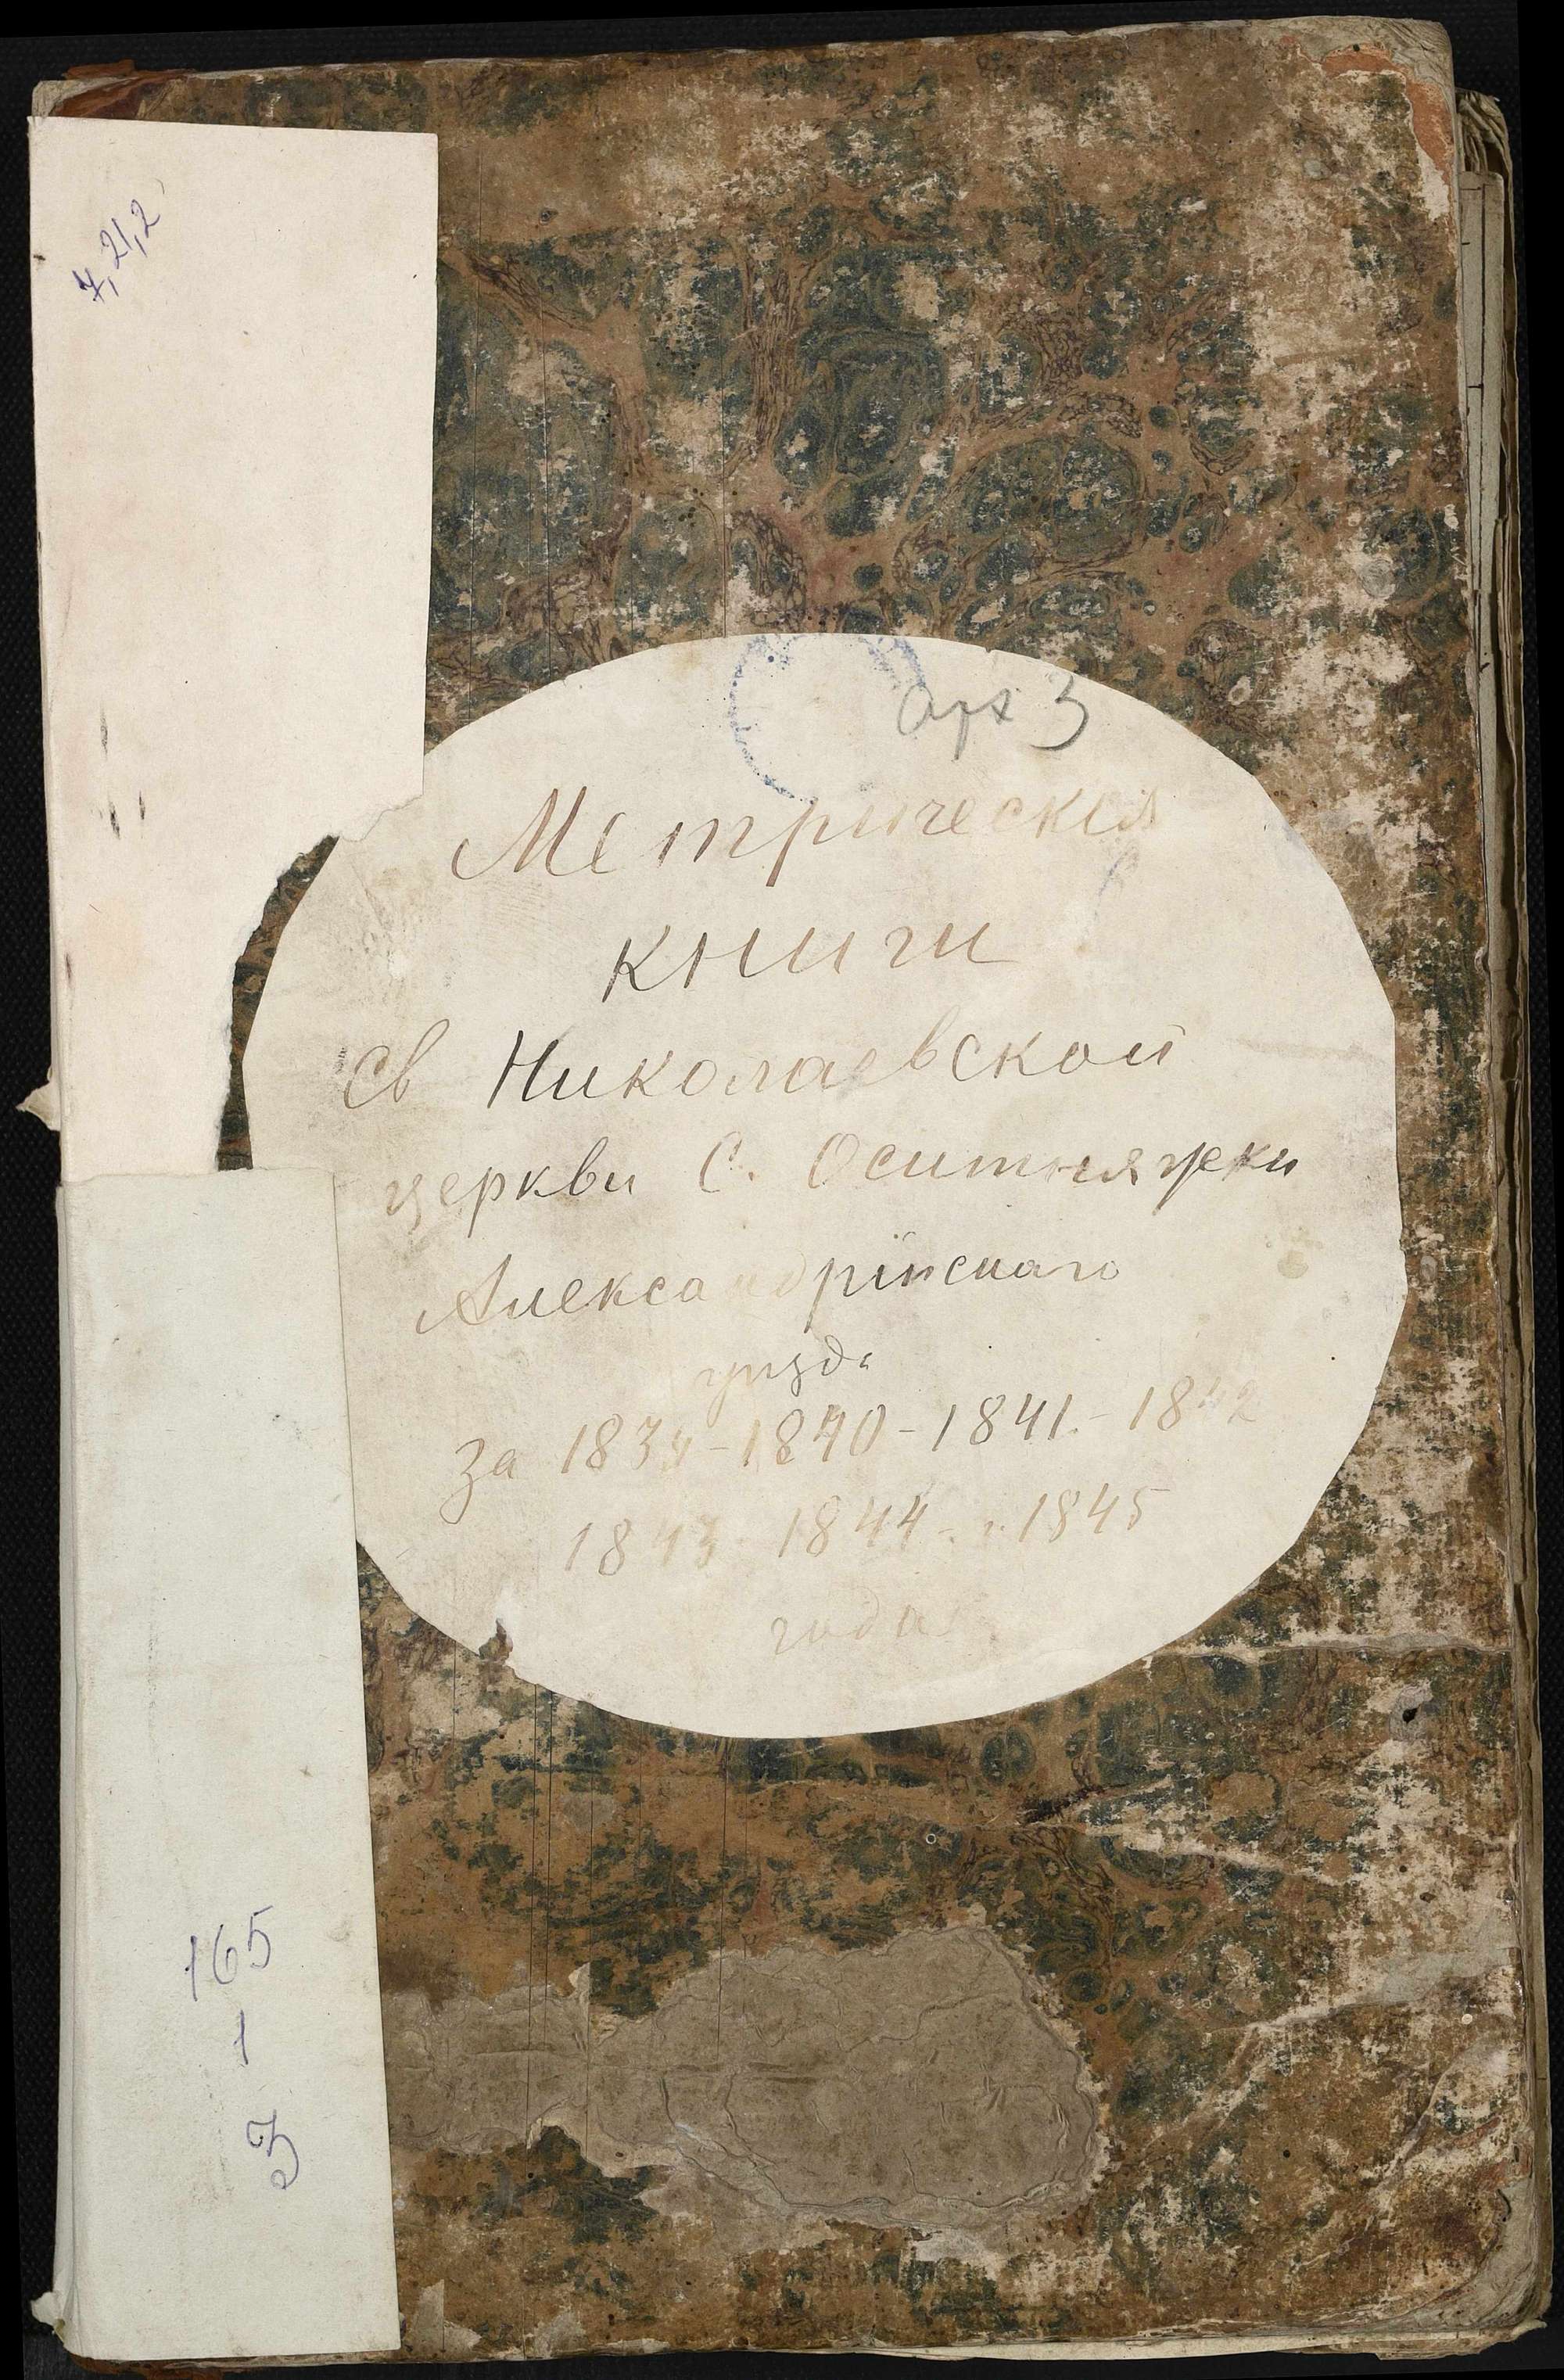 7,21,2
Арх 3
Метрическия
книги
св Николаевской
церкви С. Оситняжки
Александрiйскаго
уезда
за 1839-1840-1841.-1842
1843-1844-и 1845
года
165
1
3